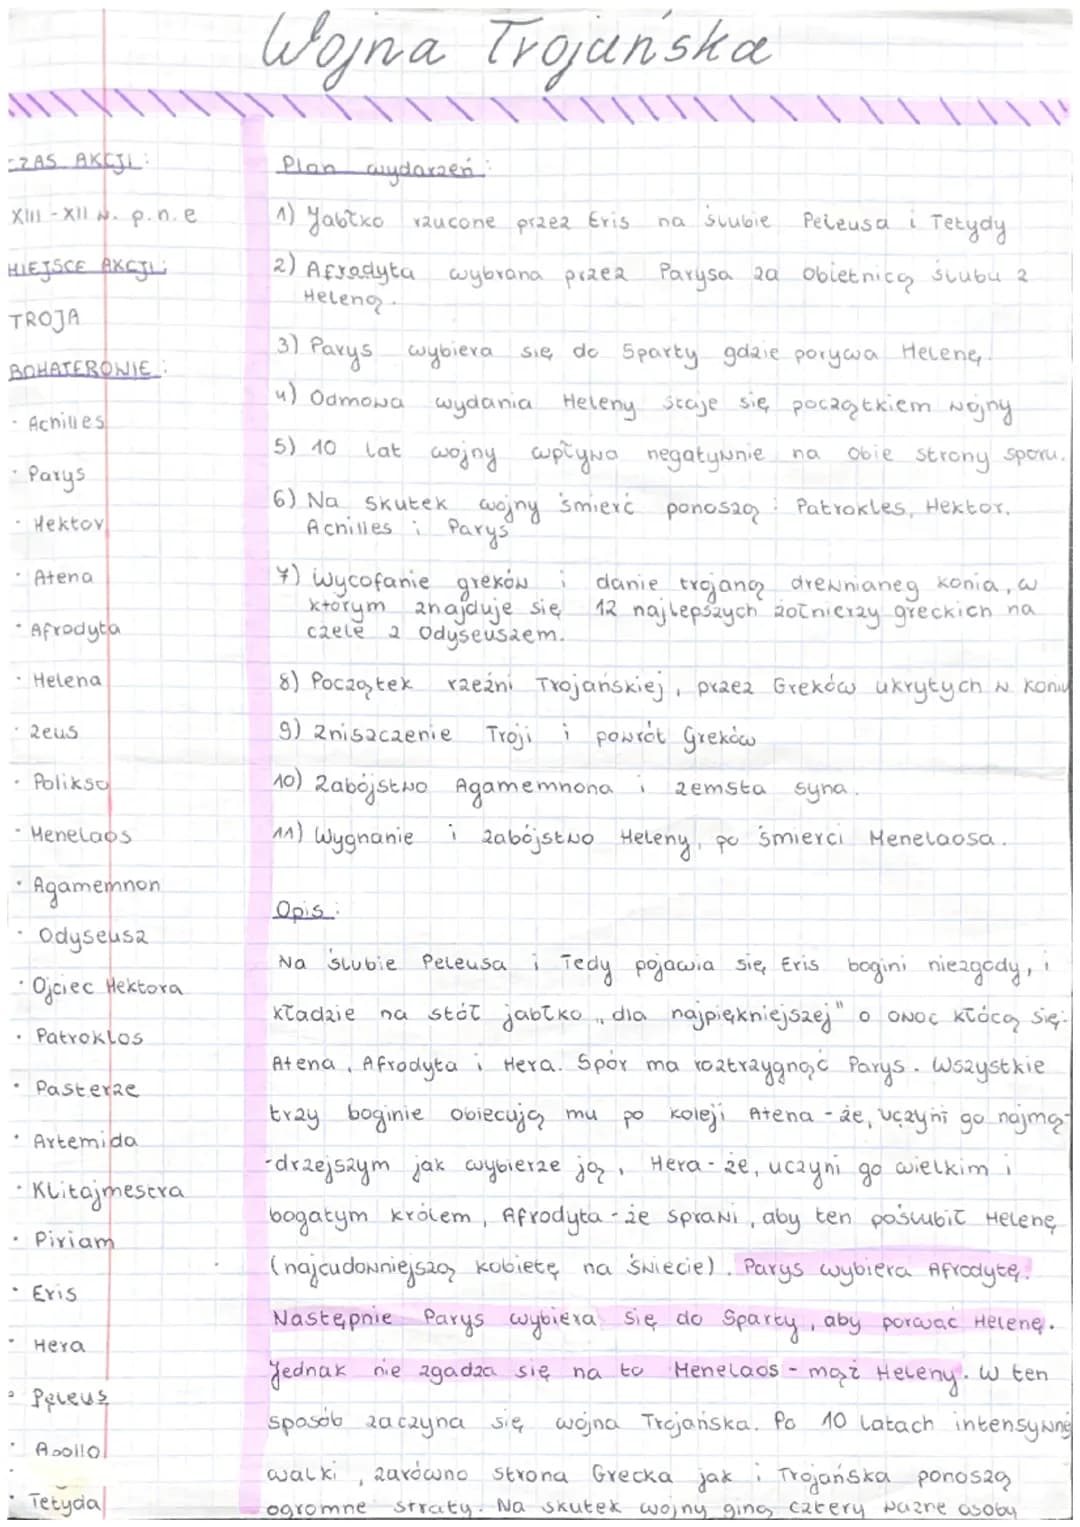 Wojna Trojańska
CZAS AKCJI:
XIII - XII w. p.n.e
MIEJSCE AKCJI:
TROJA
BOHATEROWIE:
· Achilles
· Parys
· Hektor
· Atena
· Afrodyta
· Helena
· Zeus
· Poliksa
· Menelaos
· Agamemnon
· Odyseusz
· Ojciec Hektora
· Patroklos
· Pasterze
· Artemida
· Klitajmestra
· Piriam
· Eris
· Hera
· Peleus
· Apollo
· Tetyda
Plan wydarzeń:
1) Jabłko rzucone przez Eris na ślubie Peleusa i Tetydy
2) Afrodyta wybrana przez Parysa za obietnicą ślubu z
Heleną.
3) Parys wybiera się do Sparty gdzie porywa Helenę.
4) Odmowa wydania Heleny staje się początkiem wojny
5) 10 lat wojny wpływa negatywnie na obie strony sporu.
6) Na skutek wojny śmierć ponoszą: Patrokles, Hektor.
Achilles i Parys
7) Wycofanie greków i danie trojaną drewnianeg konia, w
którym znajduje się 12 najlepszych żołnierzy greckich na
czele z Odyseuszem.
8) Początek rzeźni Trojańskiej, przez Greków ukrytych w koniu
9) Zniszczenie Troji i powrót Greków
10) Zabójstwo Agamemnona i zemsta syna.
11) Wygnanie i zabójstwo Heleny, po śmierci Menelaosa.
Opis:
Na ślubie Peleusa i Tedy pojawia się Eris bogini niezgody, i
kładzie na stół jabłko „dla najpiękniejszej" o owoc kłócą się:
Atena, Afrodyta i Hera. Spór ma roztrzygnąć Parys. Wszystkie
trzy boginie obiecują mu po koleji Atena - że, uczyni go najmą-
-drzejszym jak wybierze ją, Hera - że, uczyni go wielkim i
bogatym królem, Afrodyta - że sprawi, aby ten poślubił Helenę
(najcudowniejszą kobietę na świecie). Parys wybiera Afrodytę.
Następnie Parys wybiera się do Sparty, aby porwać Helenę.
Jednak nie zgadza się na to Menelaos - mąż Heleny. W ten
sposób zaczyna się wojna Trojańska. Po 10 latach intensywnej
walki, zarówno strona Grecka jak i Trojańska ponoszą
ogromne straty. Na skutek wojny giną cztery ważne osoby